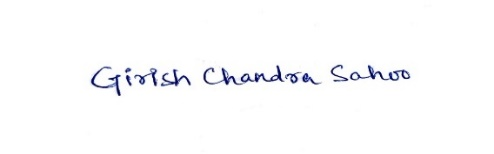 Girish Chandra Sahoo